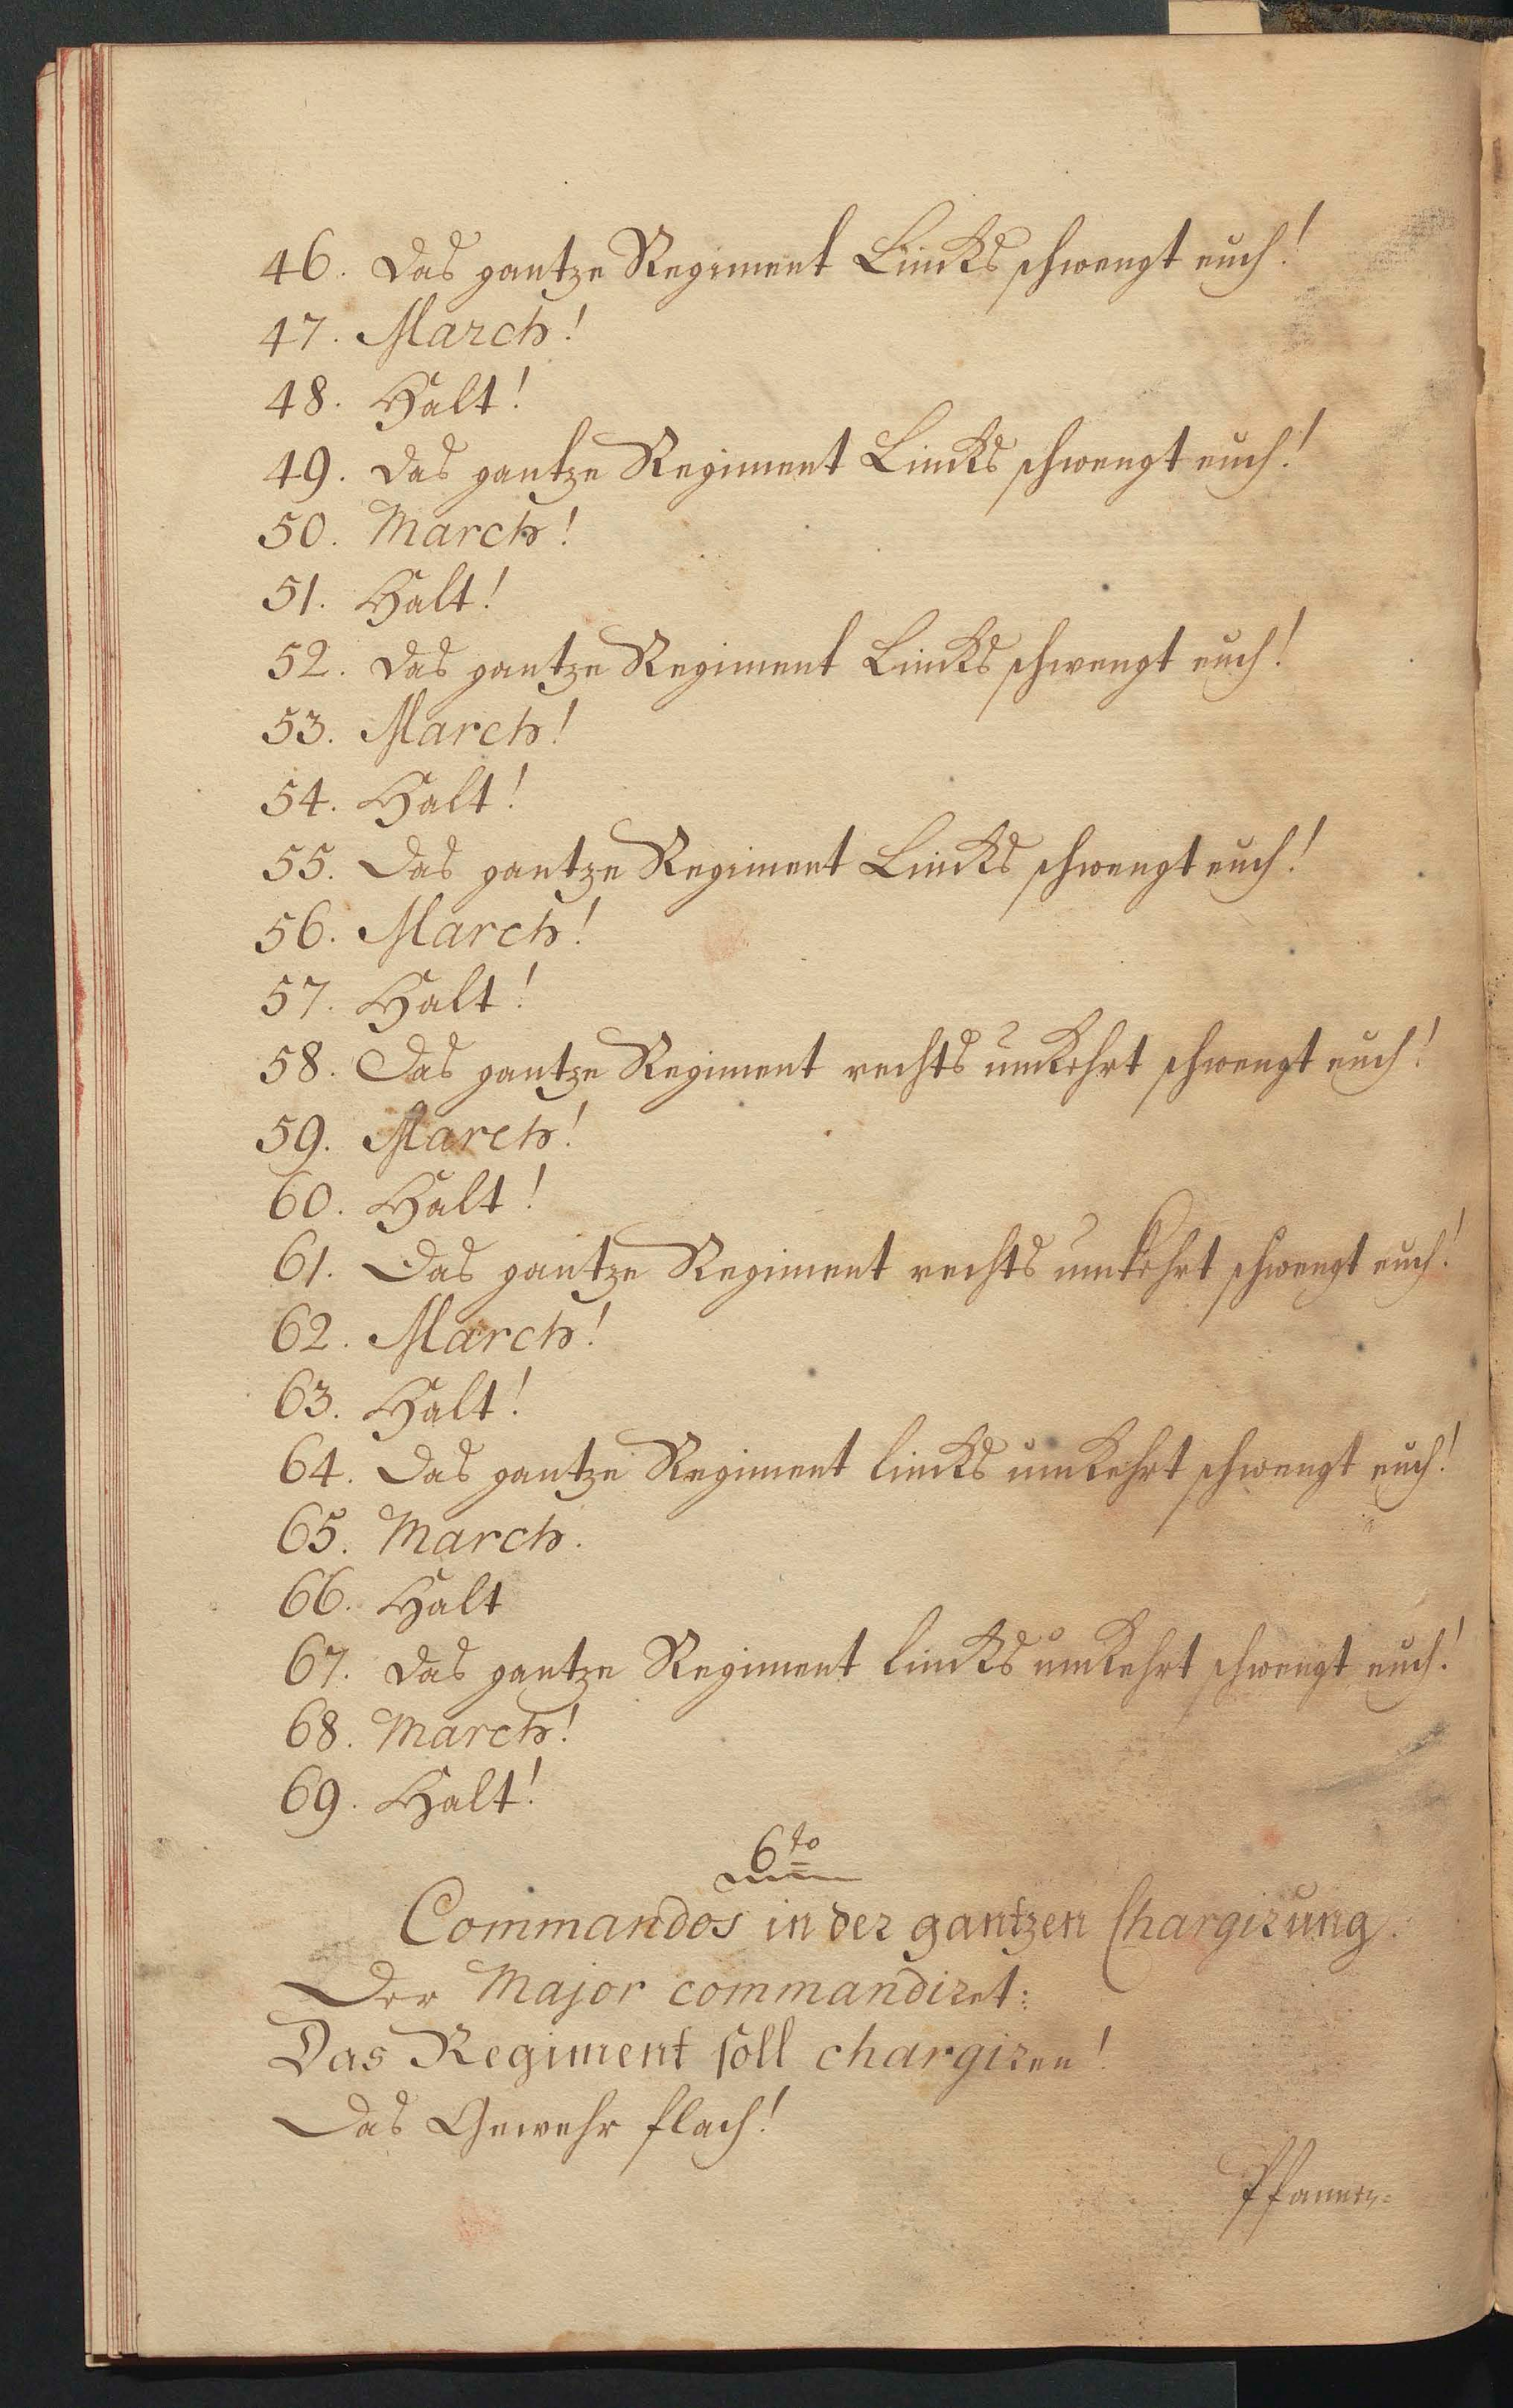 46. Das gantze Regiment Lincks schwengt euch!
47. March!
48. Halt!
49. Das gantze Regiment Lincks schwengt euch!
50. March!
51. Halt!
52. Das gantze Regiment Lincks schwengt euch!
53. March!
54. Halt!
55. Das gantze Regiment Lincks schwengt euch!
56. March!
57. Halt!
58. Das gantze Regiment rechts umkehrt schwengt euch!
59. March!
60. Halt!
61. Das gantze Regiment rechts umkehrt schwengt euch!
62. March!
63. Halt!
64. Das gantze Regiment lincks umkehrt schwengt euch!
65. March.
66. Halt
67. Das gantze Regiment lincks umkehrt schwengt euch!
68. March!
69. Halt!
6to
Commandos in der gantzen Chargirung.
Der Major commandiret:
Das Regiment soll chargiren!
Das Gewehr flach!
Pfannen=